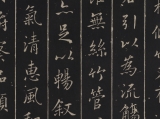 引以為流觴
無絲竹管
足以暢叙
氣清惠風和
類